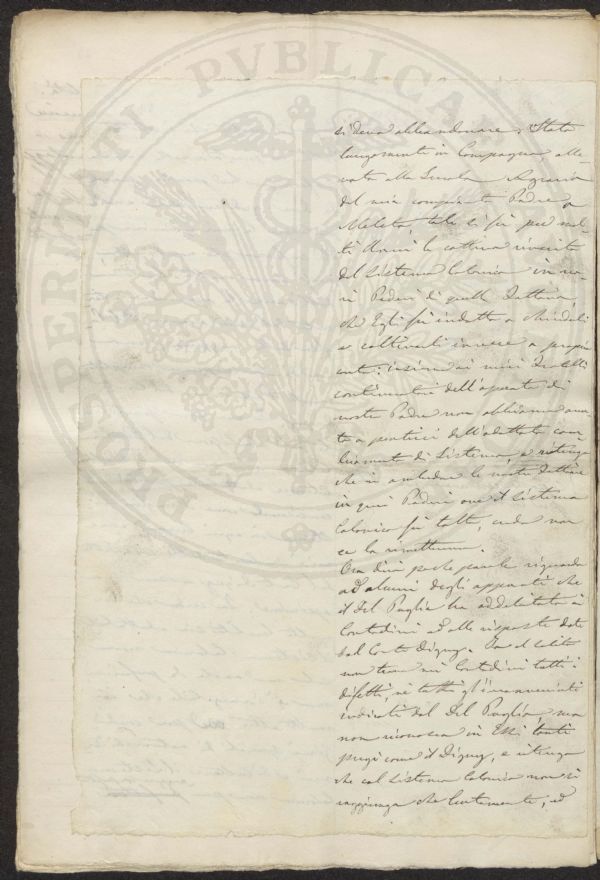 PROSPERITATI PVBLICAE
si deva abbandonare. Stato
lungamente in Campagna alle-
vato alla Scuola Agraria
del mio compianto Padre a
Meleto, tale si fu per mol-
ti Anni la cattiva riuscita
del Sistema Colonico in va-
ri Poderi di quella Fattoria,
che Egli fu indotto a chiuderli
e coltivarli invece a proprio
conto: insieme ai miei Fratelli
continuatori dell'operato di
nostro Padre non abbiamo avu-
to a pentirci dell'adottato cam-
biamento di Sistema, e ritengo
che in ambedue le nostre Fattorie
in quei Poderi ove il Sistema
Colonico fu tolto, credo non
ce lo rimetteremo.
Ora dirò poche parole riguardo
ad alcuni degli appunti che
il Del Puglia ha addebitato ai
Contadini ed alle risposte date
dal Conte Digny. Io al solito
non trovo nei Contadini tutti i
difetti, nè tutti gl'inconvenienti
indicati dal Del Puglia, ma
non riconosco in Essi tanti
pregi come il Digny, e ritengo
che col Sistema Colonico non si
raggiunga che lentamente, ed